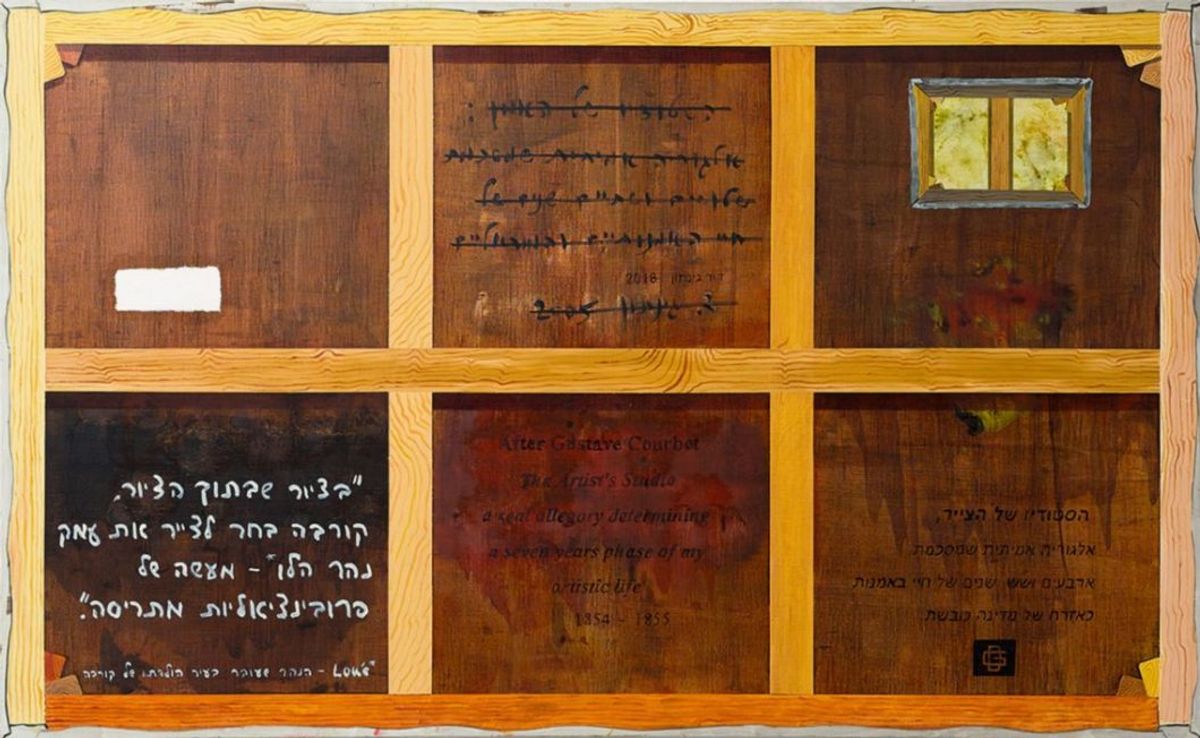 הסטודיו של האמן :
אלגוריה אמיתית שמסכמת
שלושים ושתיים שנים של
חיי האמנותיים
דוד גינתון 2018
ד. גינתון 2005
"בציור שבתוך הציור,
קורבה בחר לצייר את עמק
נהר הלו* – מעשה של
פרובינציאליות מתריסה".
*Loue – הנהר שעובר בעיר הולדתו של קורבה
After Gustave Courbet
The Artist's Studio
a real allegory determining
a seven years phase of my
artistic life
1854 - 1855
הסטודיו של הצייר,
אלגוריה אמיתית שמסכמת
ארבעים ושש שנים של חיי באמנות
כאזרח של מדינה כובשת